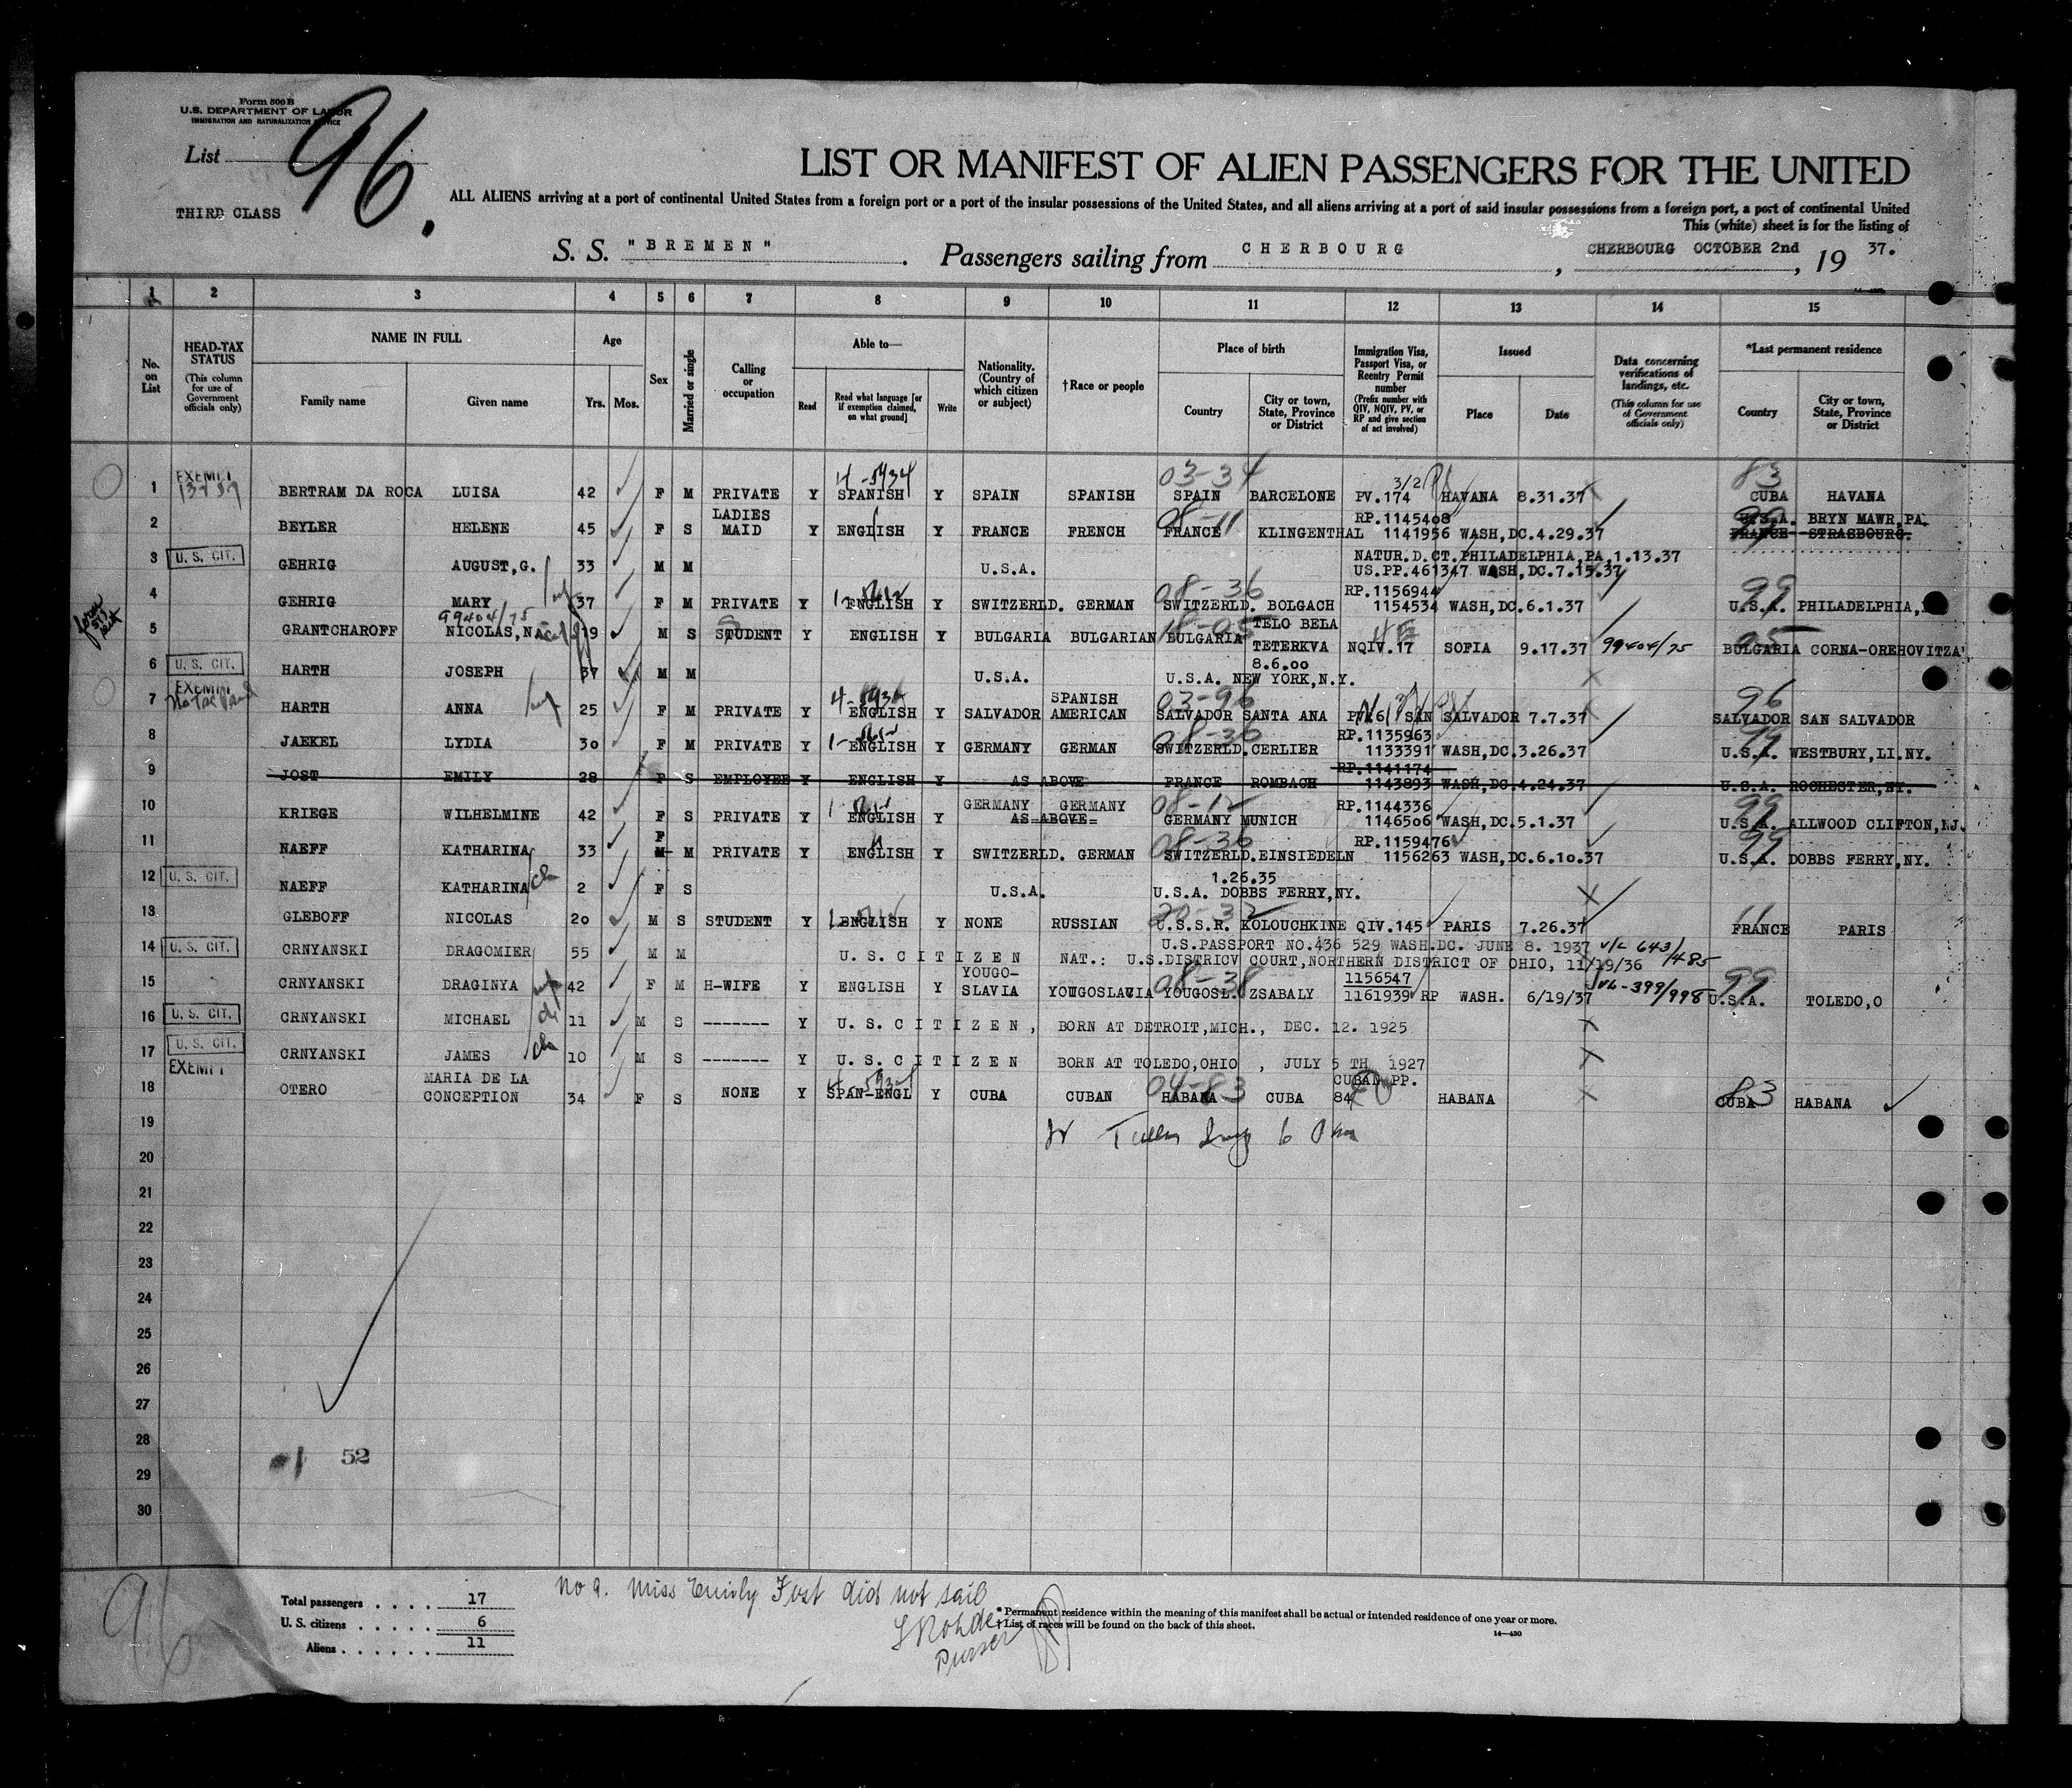 Form 500 B
U.S. DEPARTMENT OF LABOR
IMMIGRATION AND NATURALIZATION SERVICE
List 96.
THIRD CLASS
LIST OR MANIFEST OF ALIEN PASSENGERS FOR THE UNITED
ALL ALIENS arriving at a port of continental United States from a foreign port or a port of the insular possessions of the United States, and all aliens arriving at a port of said insular possessions from a foreign port, a port of continental United
This (white) sheet is for the listing of
S. S. "BREMEN". Passengers sailing from CHERBOURG, CHERBOURG OCTOBER 2nd, 19 37.
1 2 3 4 5 6 7 8 9 10 11 12 13 14 15
No. on List
HEAD-TAX STATUS (This column for use of Government officials only)
NAME IN FULL
Family name Given name
Age
Yrs. Mos.
Sex
Married or single
Calling or occupation
Able to—
Read Read what language [or if exemption claimed, on what ground] Write
Nationality. (Country of which citizen or subject)
†Race or people
Place of birth
Country City or town, State, Province or District
Immigration Visa, Passport Visa, or Reentry Permit number (Prefix number with QIV, NQIV, PV, or RP and give section of act involved)
Issued
Place Date
Data concerning verifications of landings, etc. (This column for use of Government officials only)
*Last permanent residence
Country City or town, State, Province or District
EXEMPT 4-5934 03-34 3/2 83
1 BERTRAM DA ROCA LUISA 42 F M PRIVATE Y SPANISH Y SPAIN SPANISH SPAIN BARCELONE PV.174 HAVANA 8.31.37 CUBA HAVANA
2 BEYLER HELENE 45 F S LADIES MAID Y ENGLISH Y FRANCE FRENCH 08-11 FRANCE KLINGENTHAL RP.1145408 1141956 WASH,DC.4.29.37 99 U.S.A. BRYN MAWR,PA. FRANCE STRASBOURG.
3 U. S. CIT. GEHRIG AUGUST,G. 33 M M U.S.A. NATUR.D.CT.PHILADELPHIA,PA,1.13.37 US.PP.461347 WASH,DC.7.15.37
4 GEHRIG MARY 37 F M PRIVATE Y ENGLISH Y SWITZERLD. GERMAN 08-36 SWITZERLD. BOLGACH RP.1156944 1154534 WASH,DC.6.1.37 99 U.S.A. PHILADELPHIA,
99404/75
5 GRANTCHAROFF NICOLAS,NA 19 M S STUDENT Y ENGLISH Y BULGARIA BULGARIAN BULGARIA TELO BELA TETERKVA NQIV.17 SOFIA 9.17.37 99404/75 05 BULGARIA CORNA-OREHOVITZA
6 U. S. CIT. HARTH JOSEPH 37 M M U.S.A. 8.6.00 U.S.A. NEW YORK,N.Y.
7 EXEMPT HARTH ANNA 25 F M PRIVATE Y ENGLISH Y SALVADOR SPANISH AMERICAN 03-96 SALVADOR SANTA ANA SAN SALVADOR 7.7.37 96 SALVADOR SAN SALVADOR
8 JAEKEL LYDIA 30 F M PRIVATE Y ENGLISH Y GERMANY GERMAN 08-36 SWITZERLD.CERLIER RP.1135963 1133391 WASH,DC.3.26.37 99 U.S.A. WESTBURY,LI.NY.
9 JOST EMILY 28 F S EMPLOYEE Y ENGLISH Y AS ABOVE FRANCE ROMBACH RP.1141174 1143893 WASH,DC.4.24.37 U.S.A. ROCHESTER,NY.
10 KRIEGE WILHELMINE 42 F S PRIVATE Y ENGLISH Y GERMANY GERMANY AS=ABOVE= 08-12 GERMANY MUNICH RP.1144336 1146506 WASH,DC.5.1.37 99 U.S.A. ALLWOOD CLIFTON,NJ.
11 NAEFF KATHARINA 33 F M M PRIVATE Y ENGLISH Y SWITZERLD. GERMAN 08-36 SWITZERLD.EINSIEDELN RP.1159476 1156263 WASH,DC.6.10.37 99 U.S.A. DOBBS FERRY,NY.
12 U. S. CIT. NAEFF KATHARINA ch 2 F S U.S.A. 1.26.35 U.S.A. DOBBS FERRY,NY.
13 GLEBOFF NICOLAS 20 M S STUDENT Y ENGLISH Y NONE RUSSIAN U.S.S.R. KOLOUCHKINE QIV.145 PARIS 7.26.37 11 FRANCE PARIS
14 U. S. CIT. CRNYANSKI DRAGOMIER 55 M M U. S. CITIZEN U.S.PASSPORT NO.436 529 WASH.DC. JUNE 8. 1937 NAT.: U.S.DISTRICV COURT,NORTHERN DISTRICT OF OHIO, 11/19/36 V/L 643/485
15 CRNYANSKI DRAGINYA 42 F M H-WIFE Y ENGLISH Y YOUGO-SLAVIA YOUGOSLAVIA 08-38 YOUGOSL. ZSABALY 1156547 1161939 RP WASH. 6/19/37 VL-399/998 99 U.S.A. TOLEDO,O
16 U. S. CIT. CRNYANSKI MICHAEL 11 M S ------- Y U. S. CITIZEN, BORN AT DETROIT,MICH., DEC. 12. 1925
17 U. S. CIT. CRNYANSKI JAMES ch 10 M S ------- Y U. S. CITIZEN BORN AT TOLEDO,OHIO , JULY 5 TH 1927
18 EXEMPT OTERO MARIA DE LA CONCEPTION 34 F S NONE Y SPAN-ENGL Y CUBA CUBAN 04-83 HABANA CUBA CUBAN PP. 84 HABANA 83 CUBA HABANA
19
20
21
22
23
24
25
26
27
28
29
30
52
96
Total passengers 17
U. S. citizens 6
Aliens 11
No 9. Miss Emily Jost did not sail
LRohde
Purser
* Permanent residence within the meaning of this manifest shall be actual or intended residence of one year or more.
† List of races will be found on the back of this sheet.
14—430